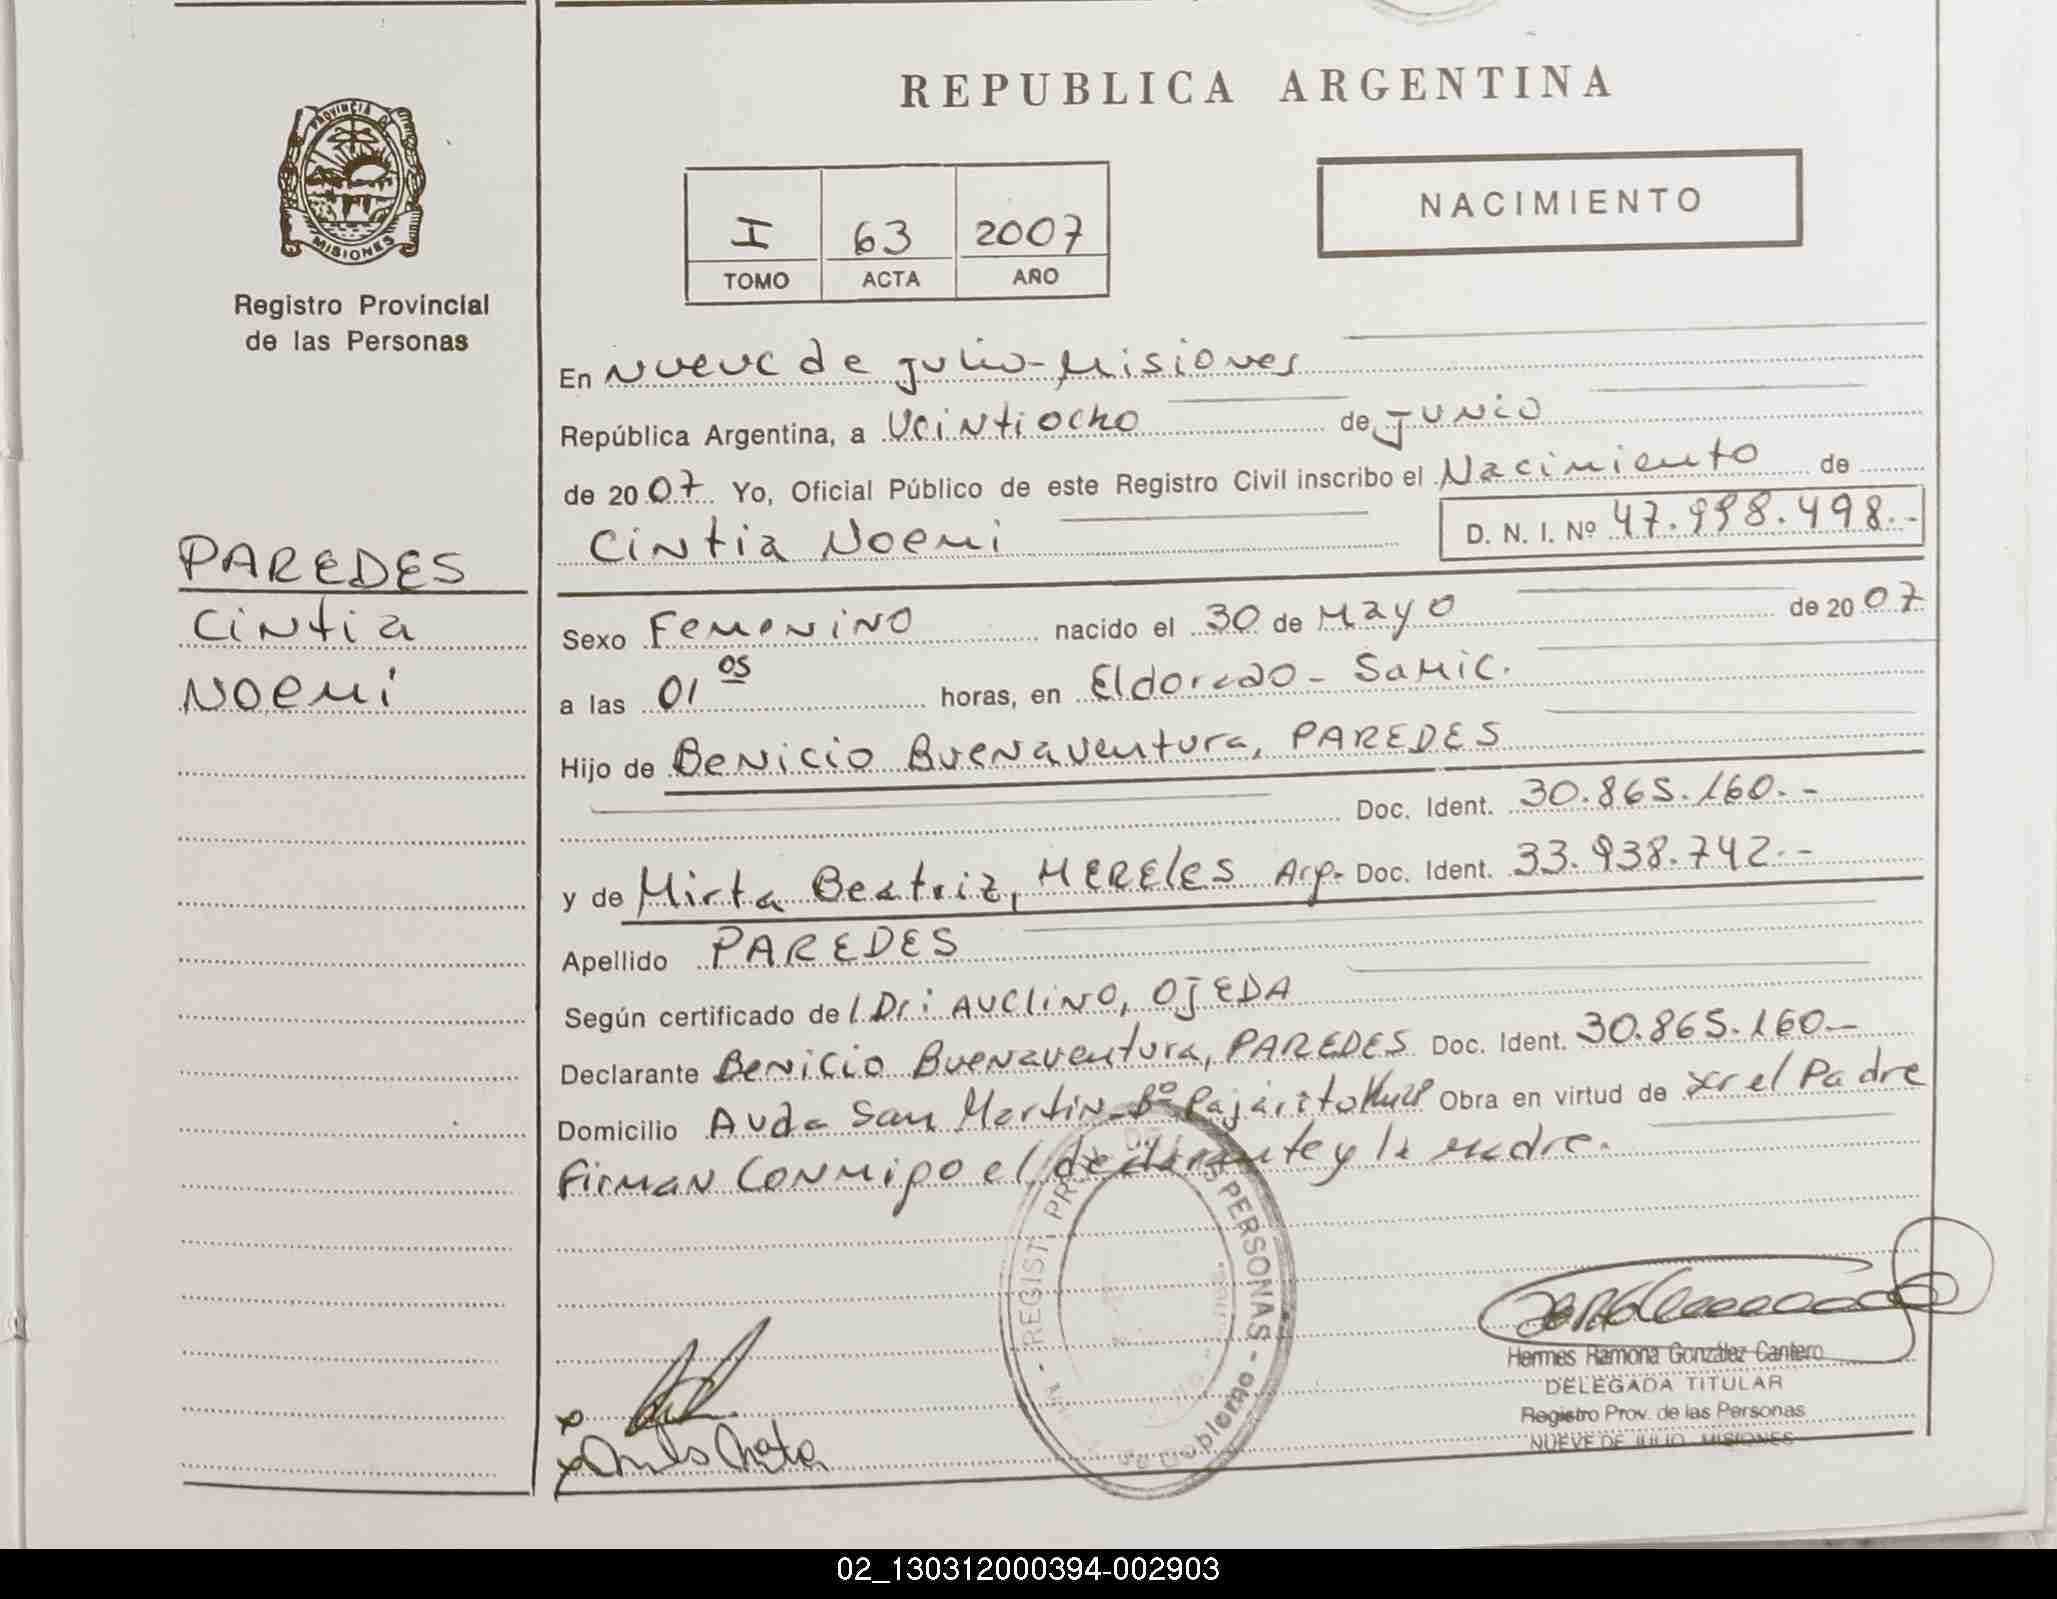 REPUBLICA ARGENTINA
PROVINCIA DE
MISIONES
Registro Provincial
de las Personas
NACIMIENTO
I 63 2007
TOMO ACTA AÑO
En Nueve de julio-Misiones
República Argentina, a Veintiocho de junio
de 2007 Yo, Oficial Público de este Registro Civil inscribo el Nacimiento de
Cintia Noemi D. N. I. Nº 47.998.498.-
PAREDES
Cintia
Noemi
Sexo Femenino nacido el 30 de Mayo de 2007
a las 01 05 horas, en Eldorado - Samic.
Hijo de Benicio Buenaventura, PAREDES
Doc. Ident. 30.865.160.-
y de Mirta Beatriz, MERELES Arg- Doc. Ident. 33.938.742.-
Apellido PAREDES
Según certificado de l Dr: AVELINO, OJEDA
Declarante Benicio Buenaventura, PAREDES Doc. Ident. 30.865.160-
Domicilio Avda San Martin-Bº Pajarito Obra en virtud de ser el Padre
Firman Conmigo el declarante y la madre.
PERSONAS -
Hermes Ramona González Cantero
DELEGADA TITULAR
Registro Prov. de las Personas
NUEVE DE JULIO MISIONES
02_130312000394-002903